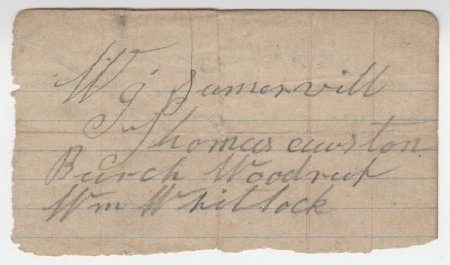 W g Sumervill
Thomas cuwston
Burch Woodruf
Wm Whitlock